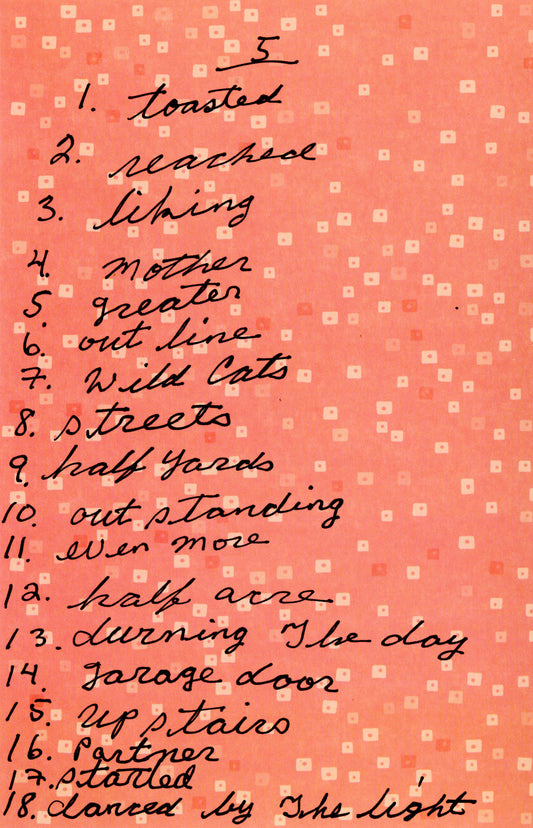 5
1. toasted
2. reached
3. liking
4. mother
5. greater
6. out line
7. Wild Cats
8. streets
9. half yards
10. out standing
11. even more
12. half acre
13. durning The day
14. garage door
15. up stairs
16. Partner
17. started
18. danced by The light